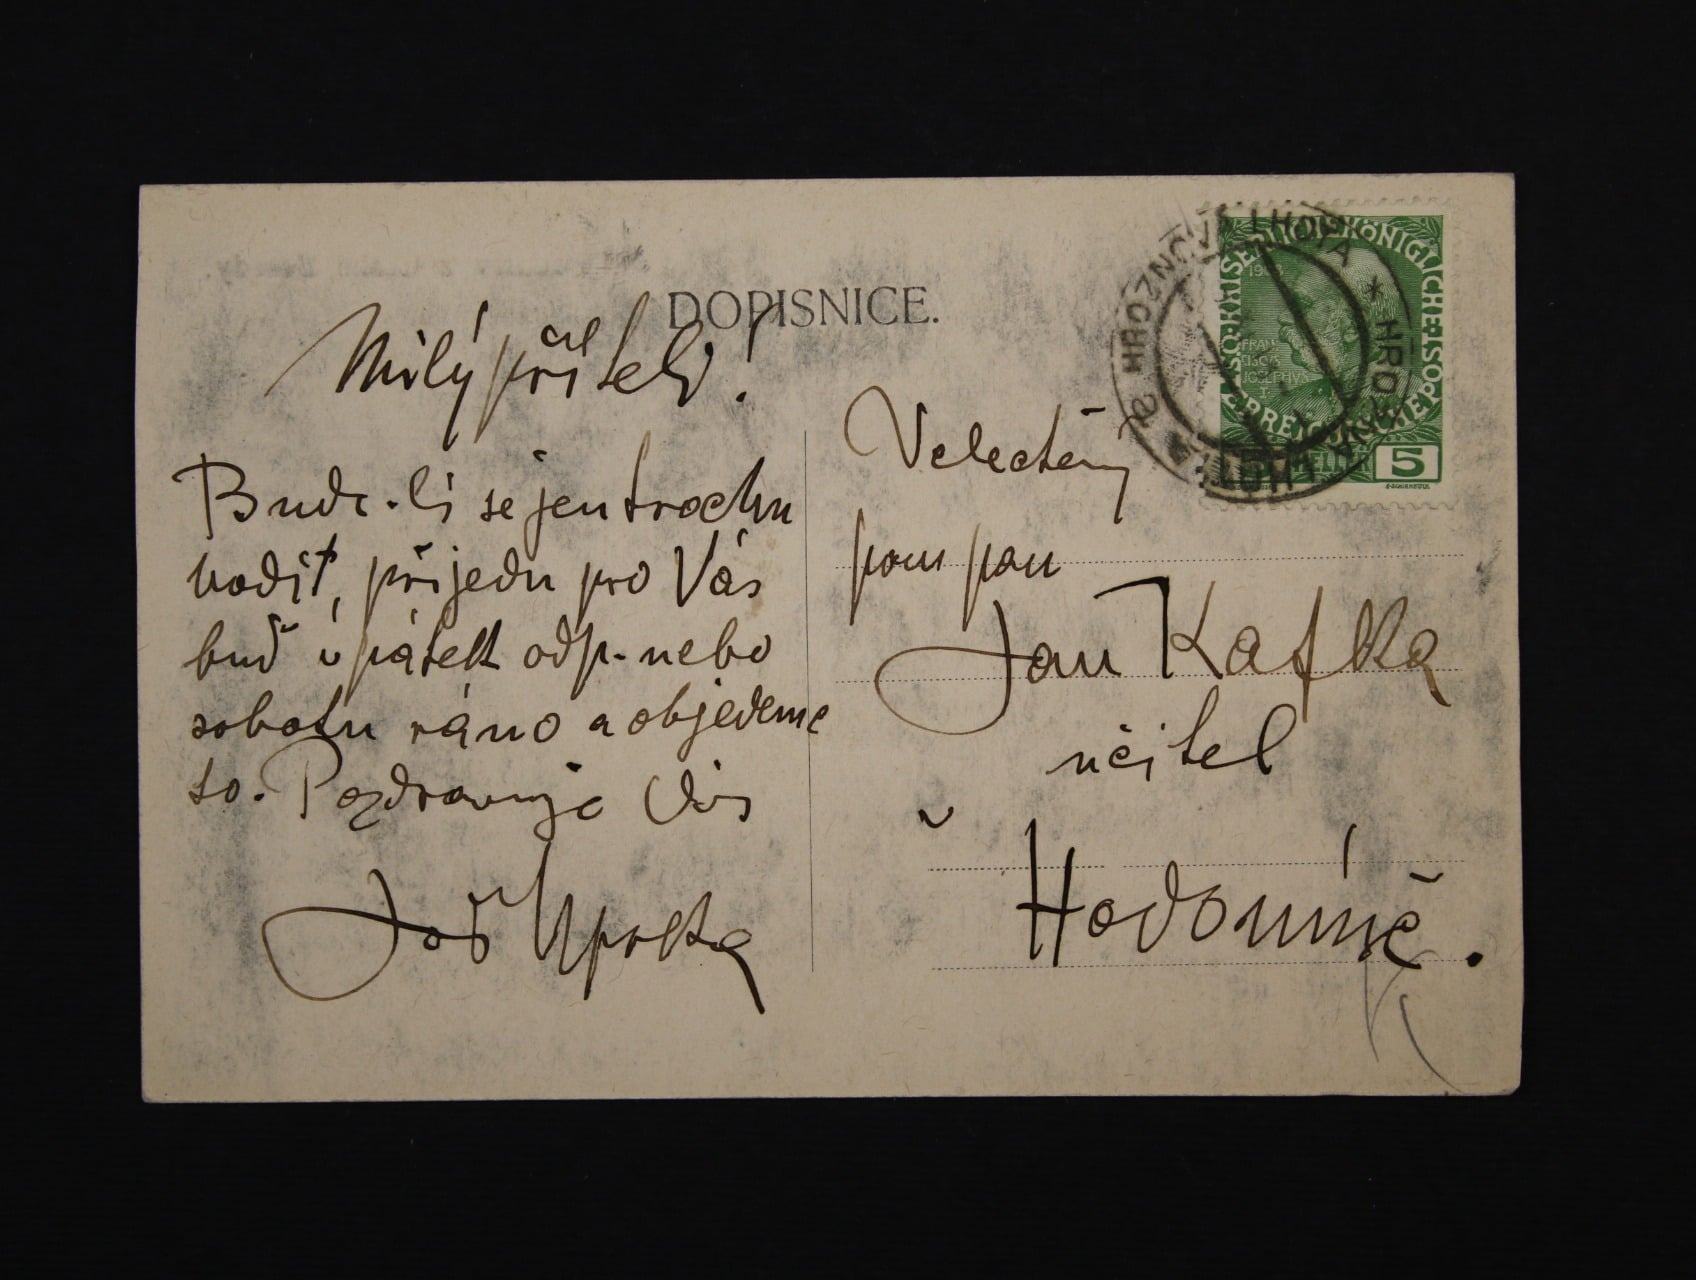 DOPISNICE.
Milý příteli!
Bude-li se jen trochu
hodit, přijedu pro Vás
buď v pátek odp. nebo
sobotu ráno a objedeme
to. Pozdravuje Vás
Jož Uprka
Velectěný
pan pan
Jan Kafka
učitel
v
Hodoníně.
HROZNOVÁ LHOTA * HROZNA LHOTA
KAISERLICHE KÖNIGLICHE POST
1908
FRAN
CISCVS
JOSEPHVS
5